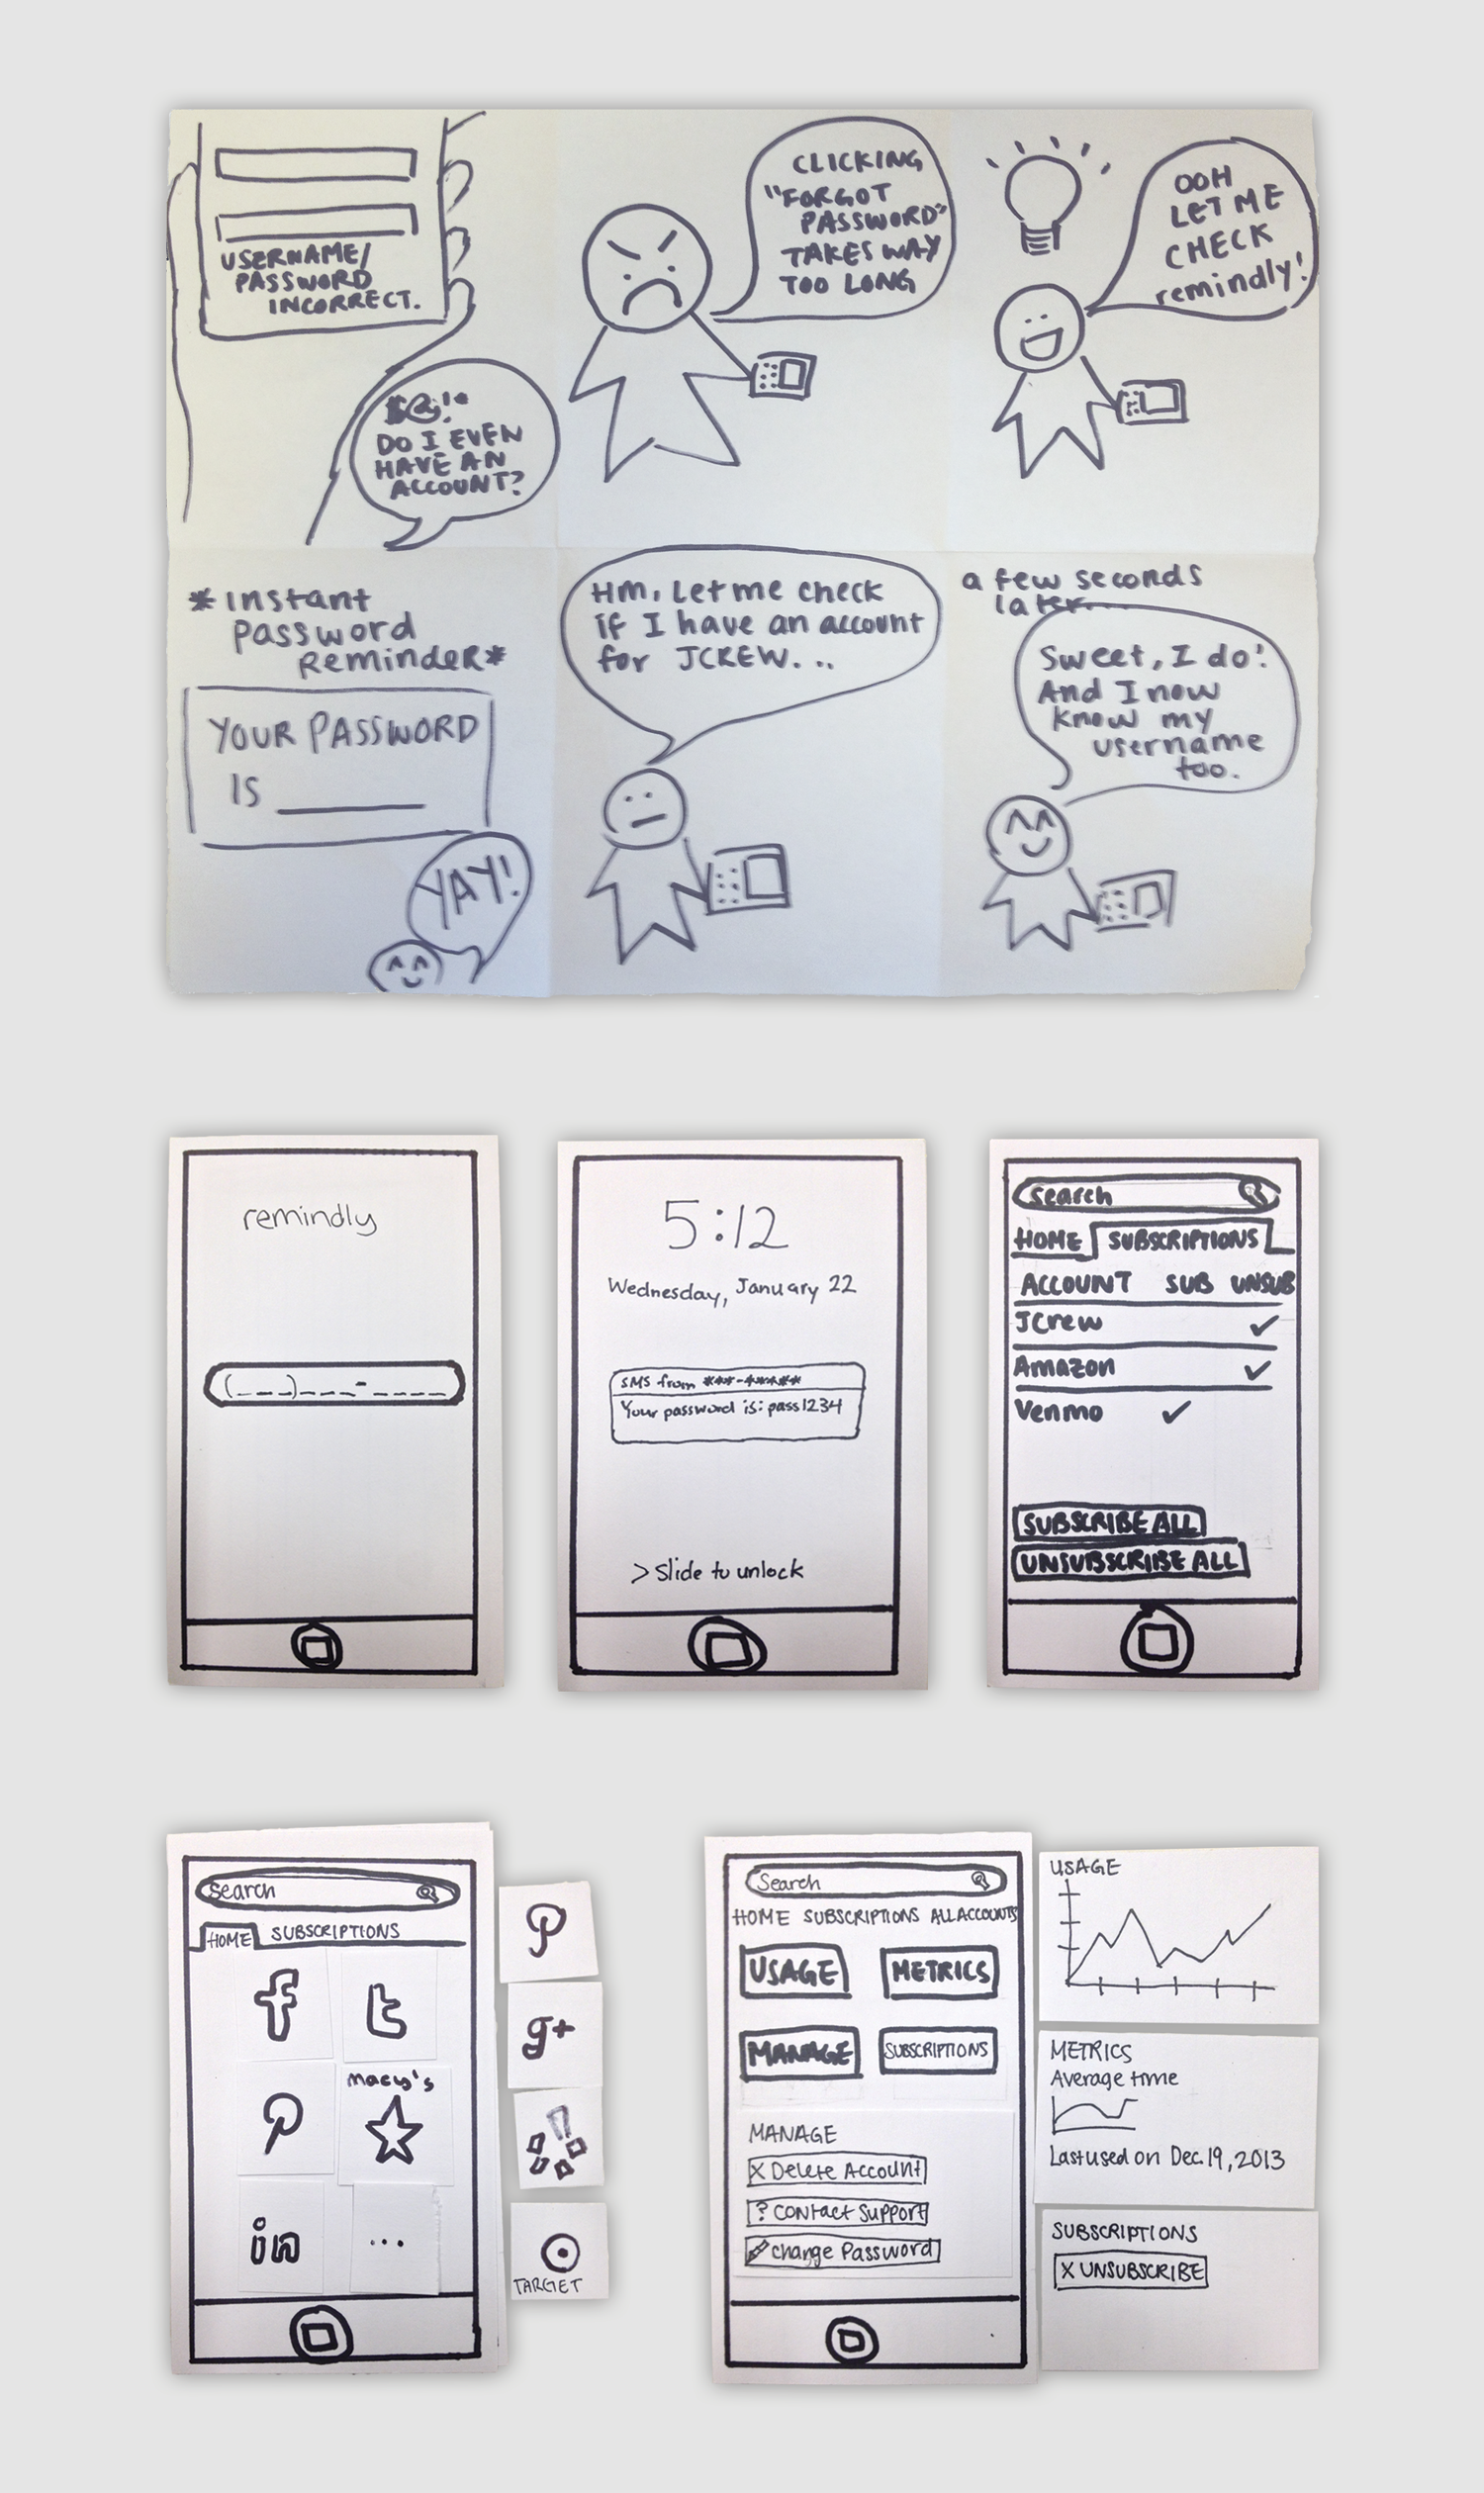 USERNAME/
PASSWORD
INCORRECT.
$@!*
DO I EVEN
HAVE AN
ACCOUNT?
CLICKING
"FORGOT
PASSWORD"
TAKES WAY
TOO LONG
OOH
LET ME
CHECK
remindly!
*Instant
Password
Reminder*
YOUR PASSWORD
IS ________
YAY!
Hm, Let me check
if I have an account
for JCREW...
a few seconds
later....
Sweet, I do!
And I now
know my
username
too.
remindly
(___)___-____
5:12
Wednesday, January 22
SMS from ***-*****
Your password is: pass1234
> Slide to unlock
Search
HOME SUBSCRIPTIONS
ACCOUNT SUB UNSUB
JCrew ✓
Amazon ✓
Venmo ✓
SUBSCRIBE ALL
UNSUBSCRIBE ALL
Search
HOME SUBSCRIPTIONS
f t
P macy's
in ...
P
g+
TARGET
Search
HOME SUBSCRIPTIONS ALL ACCOUNTS
USAGE METRICS
MANAGE SUBSCRIPTIONS
MANAGE
X Delete Account
? Contact Support
Change Password
USAGE
METRICS
Average time
Last used on Dec. 19, 2013
SUBSCRIPTIONS
X UNSUBSCRIBE